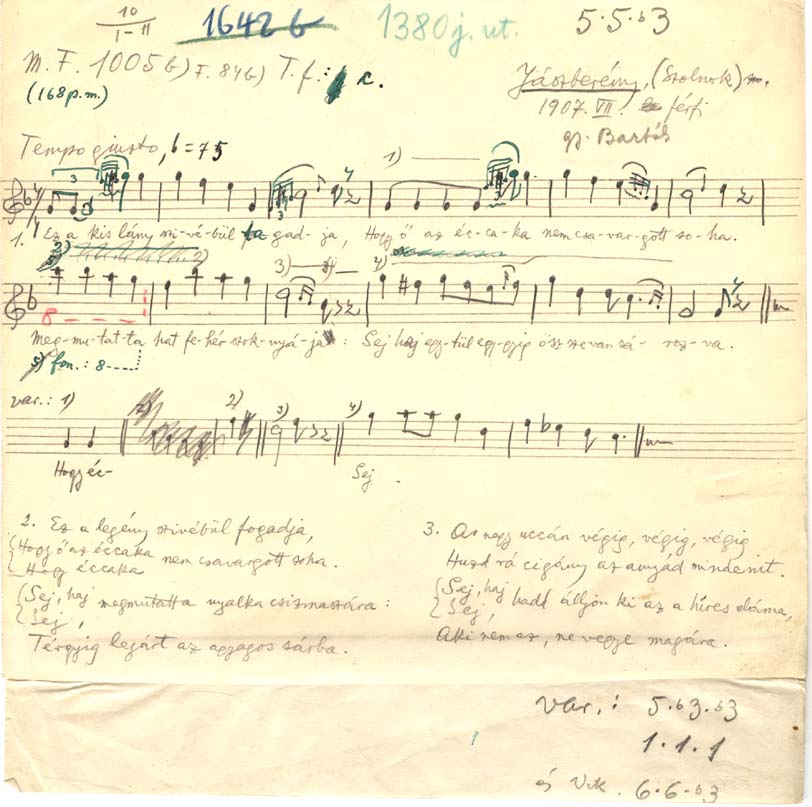 10
I-II
1642 b
1380 j. ut.
5·5·b3
M. F. 1005 b) F. 84 b) T. f.: c.
(168 p.m.)
Jászberény, (Szolnok) m.
1907. VII. férfi
gy. Bartók
Tempo giusto, = 75
1)
1. Ez a kis lány szi-vé-bül ta gad-ja, Hogy ő az éc-ca-ka nem csa-var-gott so-ha.
2) 3) 4)
8
Meg-mu-tat-ta hat fe-hér szok-nyá-ja: Sej haj egy-tül egy-gyig ösz sze van sá-roz-va.
5) fon.: 8
var.: 1) 2) 3) 4)
Hogy éc- Sej
2. Ez a legény szivébül fogadja,
Hogy ő az éccaka
Hogy éccaka nem csavargott soha.
Sej, haj
Sej, megmutatta nyalka csizmaszára:
Térgyig lejárt az agyagos sárba.
3. Az nagy uccán végig, végig, végig
Huzd rá cigány az anyád mindenit.
Sej, haj
Sej, hadd álljon ki az a híres dáma,
Aki nem az, ne vegye magára.
var.: 5·b3·b3
1·1·1
és Vik. 6·6·b3